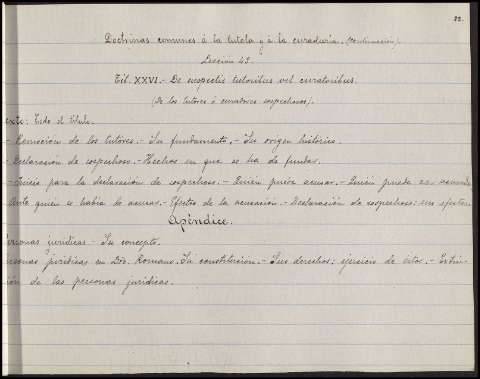 22.
Doctrinas comunes á la tutela y á la curaduría. (Continuación).
Lección 42.
Tít. XXVI.- De suspectis tutoribus vel curatoribus.
(De los tutores ó curadores sospechosos).
exto: Todo el título.
- Remoción de los tutores.- Su fundamento.- Su origen histórico.
- Declaración de sospechoso.- Hechos en que se ha de fundar.
- Juicio para la declaración de sospechoso.- Quién podía acusar.- Quién puede ser acusado
Ante quien se había de acusar.- Efectos de la acusación.- Declaración de sospechoso: sus efectos.
Apéndice.
ersonas jurídicas.- Su concepto.
rsonas jurídicas en Dro. Romano. Su constitución.- Sus derechos; ejercicio de éstos.- Extin-
ión de las personas jurídicas.